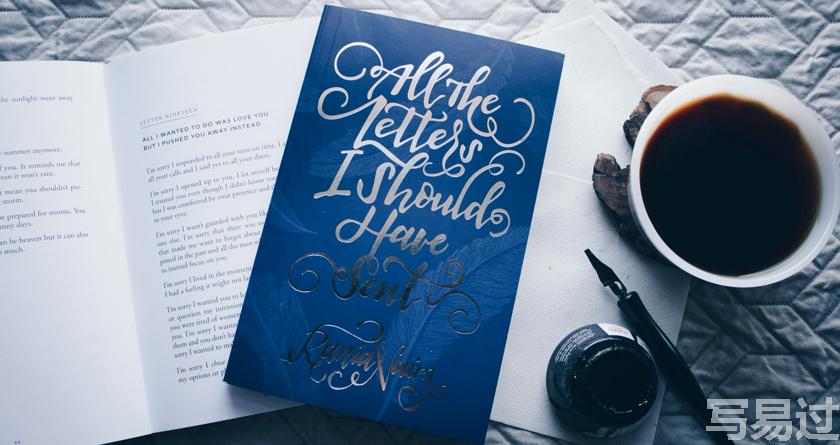 the sunlight went away
summer anymore.
f you. It reminds me that
ean it won't rain.
t mean you shouldn't pre-
storm.
e prepared for storms. You
nny days.
an be heaven but it can also
much.
64
LETTER NINETEEN
ALL I WANTED TO DO WAS LOVE YOU
BUT I PUSHED YOU AWAY INSTEAD
I'm sorry I responded to all your texts on time. I
all your calls and I said yes to all your dates.
I'm sorry I opened up to you. I let myself be
I trusted you even though I didn't know you
but I was comforted by your presence and th
in your eyes.
I'm sorry I wasn't guarded with you lik
one else. I'm sorry that there was so
that made me want to forget about
pened in the past and all the men w
to instead focus on you.
I'm sorry I lived in the momen
I had a feeling it might not las
I'm sorry I wanted you to h
or question my intention
you were tired of women
them and you don't ha
sorry I wanted to ma
I'm sorry I chose
my options or p
All the
Letters
I Should
Have
Sent
Rania Naim
写易过